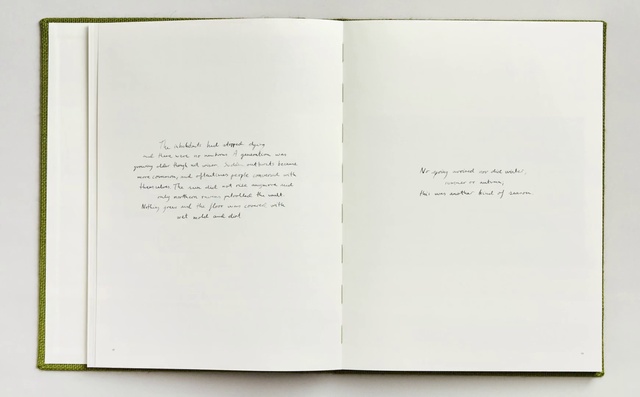 The inhabitants had stopped dying
and there were no newborns A generation was
growing older though not wiser. Sudden outbursts became
more common, and oftentimes people conversed with
themselves The sun did not rise anymore and
only northern ravens patrolled the
Nothing grew and the floor was covered with
wet mold and dust
No spring arrived nor did winter,
summer or autumn,
this was another kind of season